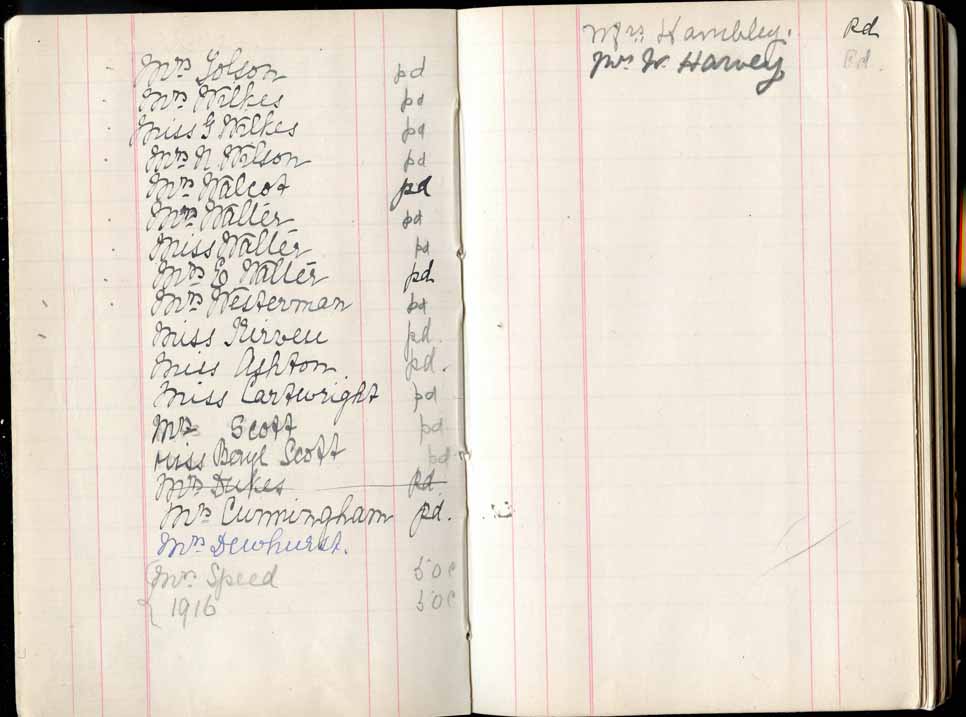 Mrs Golson pd
Mrs Wilkes pd
Miss G Wilkes pd
Mrs N. Wilson pd
Mrs Walcot pd
Mrs Walter pd
Miss Walter pd
Mrs E Walter pd
Mrs Westerman pd
Miss Kirven pd.
Miss Ashton. pd.
Miss Cartwright pd
Mrs Scott pd
Miss Beryl Scott pd
Mrs Dukes Pd.
Mrs Cunningham pd.
Mrs Dewhurst.
Mrs Speed 50c
1916 50c
Mrs Hambley. Pd
Mrs W. Harvey Pd.